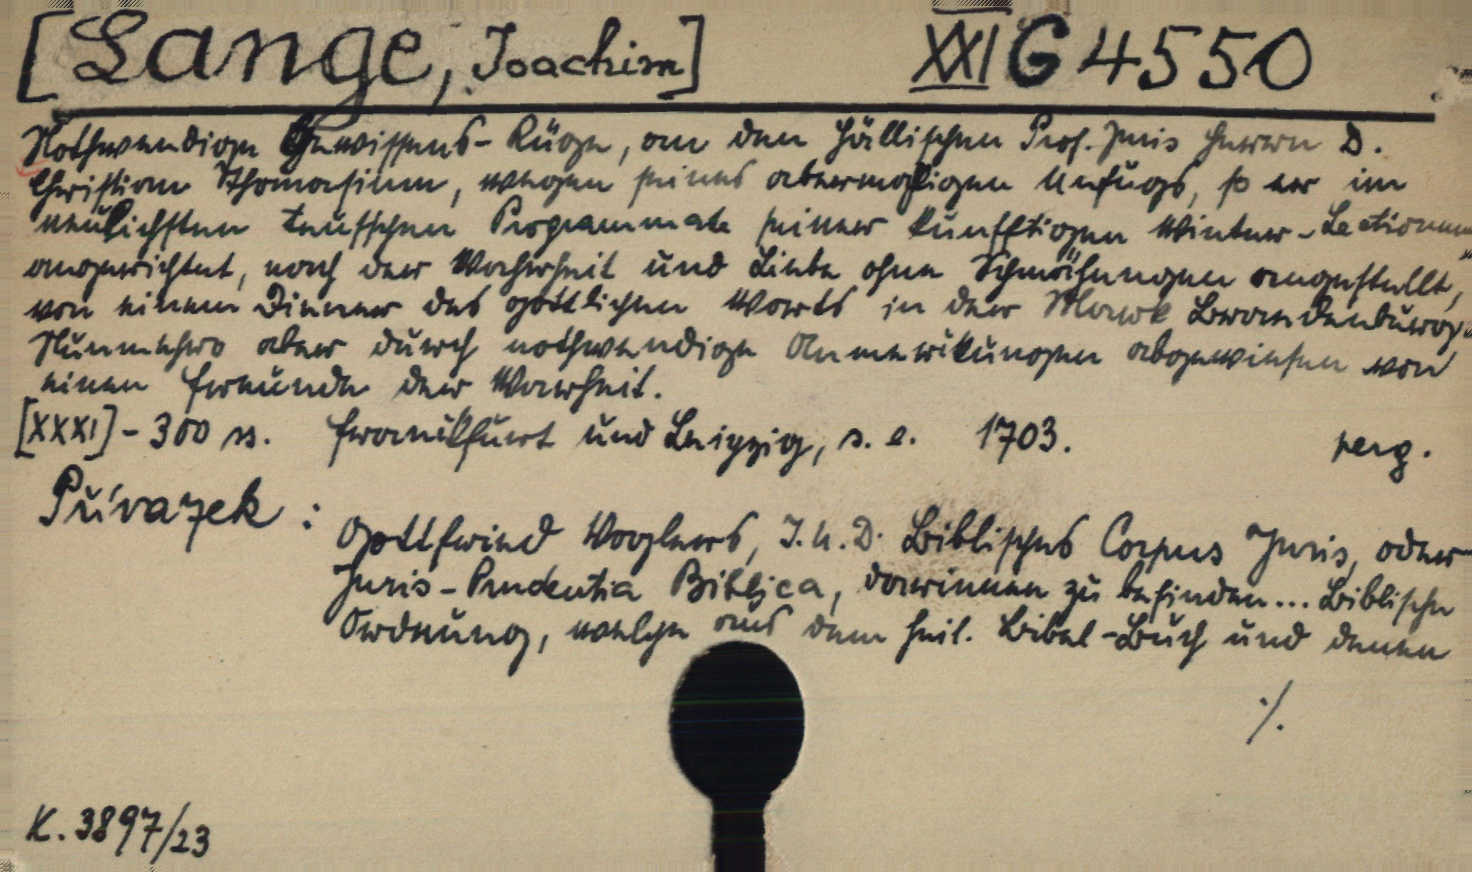 [Lange, Joachim] XXI G 4550
Nothwendige Gewissens-Rüge, an den Hällischen Prof. Juris Herrn D.
Christian Thomasium, wegen seines abermahligen Unfugs, so er im
neulichsten teutschen Programmate seiner künfftigen Winter-Lectionum
angerichtet, nach der Wahrheit und Liebe ohne Schmähungen angestellt,
von einem Diener des göttlichen Worts in der Mark Brandenburg.
Nunmehro aber durch nothwendige Anmerkungen abgewiesen von
einem Freunde der Warheit.
[XXXI]-300 ss. Frankfurt und Leipzig, s. e. 1703. perg.
Přívazek :
Gottfried Voglers, I.U.D. Biblisches Corpus Juris, oder
Juris-Prudentia Biblica, darinnen zu befinden... Biblische
Ordnung, welche aus dem heil. Bibel-Buch und denen
./.
K. 3897/23